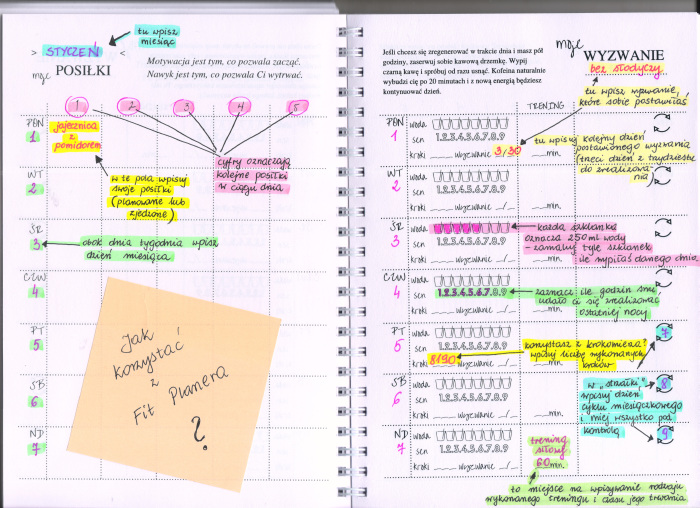 > STYCZEŃ <
tu wpisz
miesiąc
moje POSIŁKI
Motywacja jest tym, co pozwala zacząć.
Nawyk jest tym, co pozwala Ci wytrwać.
1 2 3 4 5
PON
1
jajecznica
z
pomidorem
cyfry oznaczają
kolejne posiłki
w ciągu dnia
WT
2
w te pola wpisuj
swoje posiłki
(planowane lub
zjedzone)
ŚR
3
obok dnia tygodnia wpisz
dzień miesiąca
CZW
4
PT
5
SB
6
ND
7
Jak
korzystać
z
Fit Planera
?
Jeśli chcesz się zregenerować w trakcie dnia i masz pół
godziny, zaserwuj sobie kawową drzemkę. Wypij
czarną kawę i spróbuj od razu usnąć. Kofeina naturalnie
wybudzi cię po 20 minutach i z nową energią będziesz
kontynuować dzień.
moje WYZWANIE
bez słodyczy
tu wpisz wyzwanie,
które sobie postawiłaś
TRENING
PON
1
woda
sen 1.2.3.4.5.6.7.8.9
kroki ___ wyzwanie 3/30 ___ min.
tu wpisuj kolejny dzień
postawionego wyzwania
(trzeci dzień z trzydziestu
do zrealizowa-
nia)
WT
2
woda
sen 1.2.3.4.5.6.7.8.9
kroki ___ wyzwanie _/_ ___ min.
ŚR
3
woda
sen 1.2.3.4.5.6.7.8.9
kroki ___ wyzwanie _/_ ___ min.
każda szklanka
oznacza 250 ml wody
- zamaluj tyle szklanek
ile wypiłaś danego dnia
CZW
4
woda
sen 1.2.3.4.5.6.7.8.9
kroki ___ wyzwanie _/_ ___ min.
zaznacz ile godzin snu
udało ci się zrealizować
ostatniej nocy
PT
5
woda
sen 1.2.3.4.5.6.7.8.9
kroki 8190 wyzwanie _/_ ___ min.
7
korzystasz z krokomierza?
wpisuj liczbę wykonanych
kroków
SB
6
woda
sen 1.2.3.4.5.6.7.8.9
kroki ___ wyzwanie _/_ ___ min.
8
w "strzałki"
wpisuj dzień
cyklu miesiączkowego
i miej wszystko pod
kontrolą
ND
7
woda
sen 1.2.3.4.5.6.7.8.9
kroki ___ wyzwanie _/_
trening
siłowy
60 min.
9
to miejsce na wpisywanie rodzaju
wykonanego treningu i czasu jego trwania